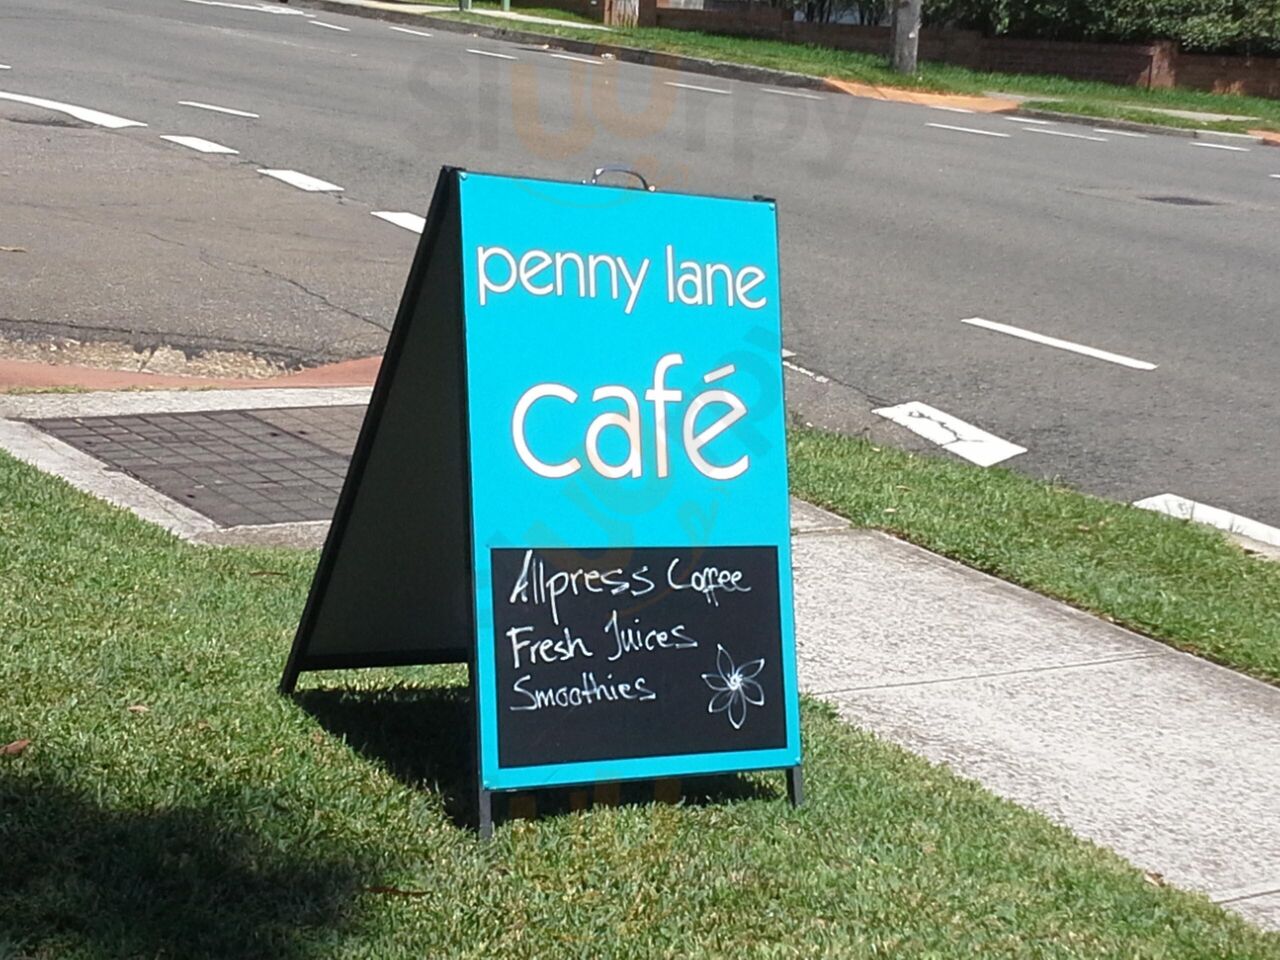 sluurpy
penny lane
café
Allpress Coffee
Fresh Juices
Smoothies